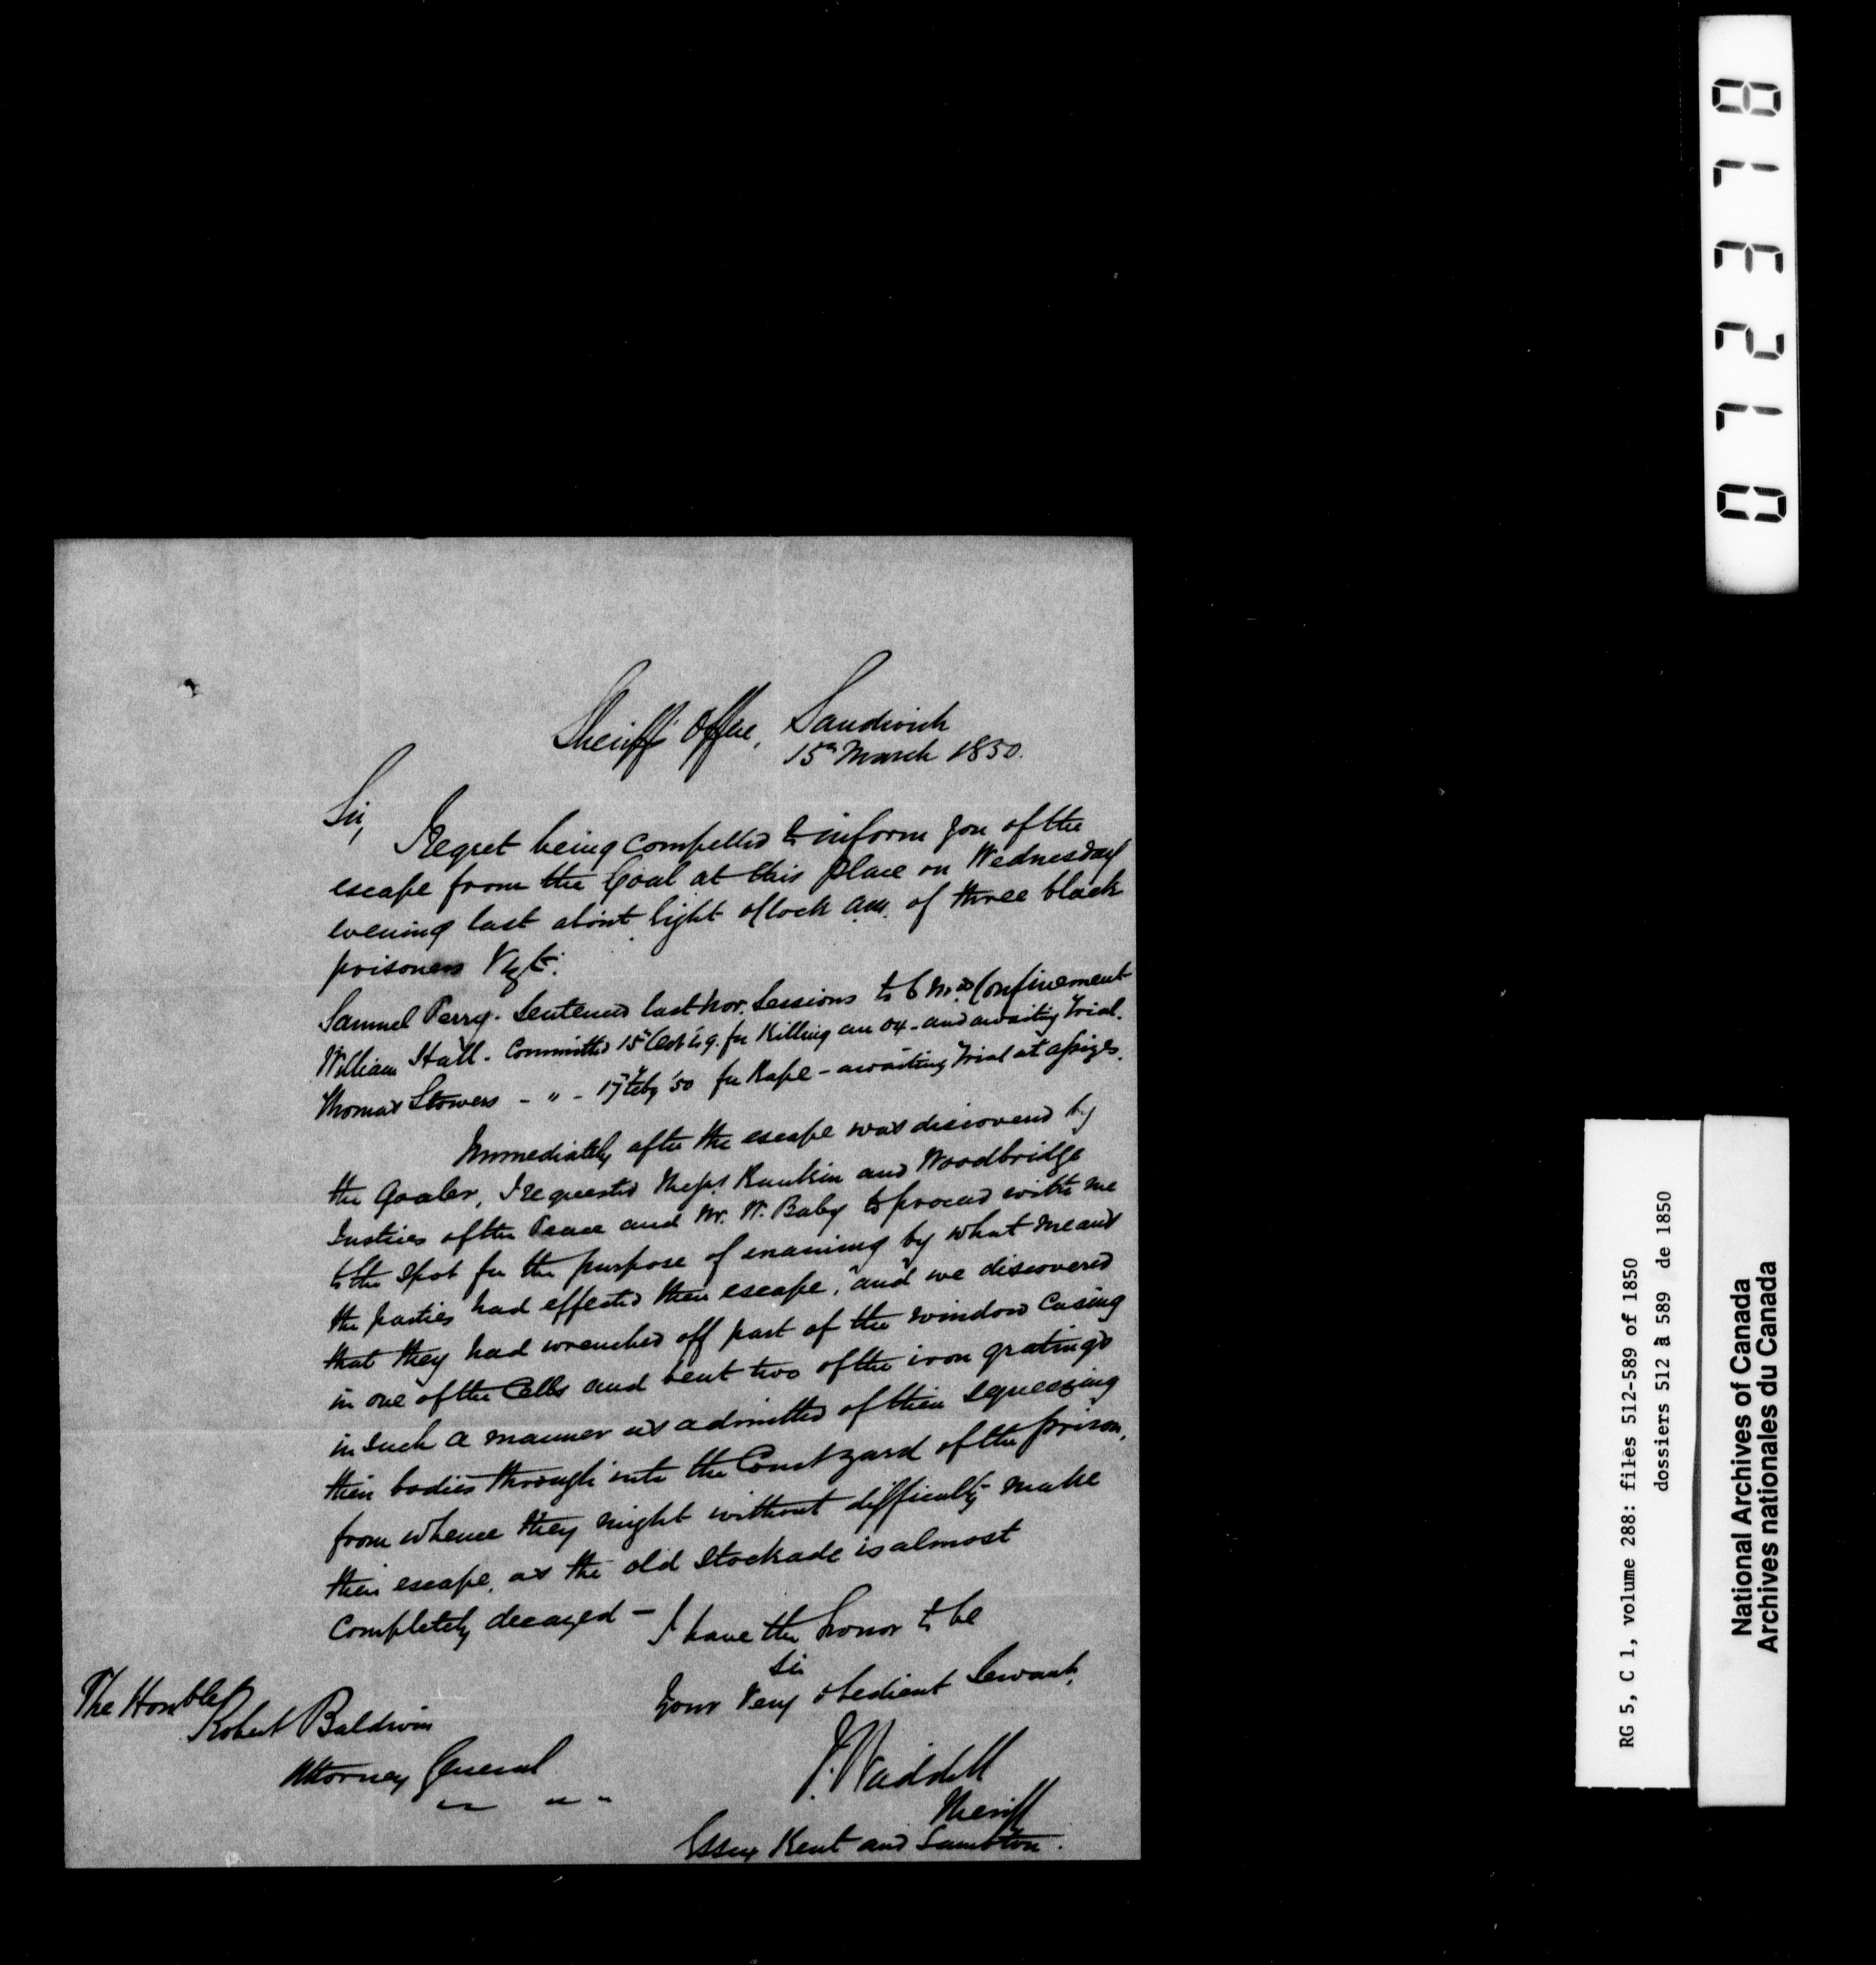 Sheriff's Office, Sandwich
15th March 1850.
Sir,
I regret being compelled to inform you of the
escape from the Goal at this place on Wednesday
evening last about eight oClock of three black
prisoners Vizt:
Samuel Perry. Sentenced last Nov. Sessions to 6 Mos. Confinement
William Hall. Committed 15 Oct 49. for Killing an Ox - and awaiting Trial.
Thomas Stowers - " - 17 Feby '50 for Rape - awaiting Trial at assizes.
Immediately after the escape was discovered by
the Goaler, I requested Messrs. Rankin and Woodbridge
Justices of the Peace and Mr. W. Baby to proceed with me
to the spot for the purpose of enaming by what means
the parties had effected their escape, and we discovered
that they had wrenched off part of the window Casing
in one of the Cells and bent two of the iron gratings
in such a manner as admitted of their squeezing
their bodies through into the Court yard of the prison,
from whence they might without difficulty make
their escape, as the old Stockade is almost
Completely decayed -
I have the honor to be
Sir
Your Very obedient Servant,
J. Waddell
Sheriff
Essex Kent and Lambton.
The Honble
Robert Baldwin
Attorney General
072378
RG 5, C 1, volume 288: files 512-589 of 1850
dossiers 512 à 589 de 1850
National Archives of Canada
Archives nationales du Canada